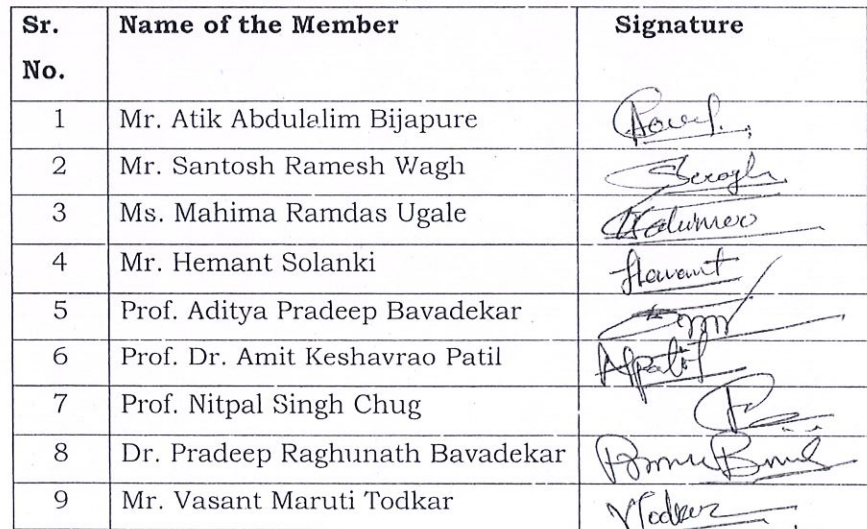 Sr. No. Name of the Member Signature
1 Mr. Atik Abdulalim Bijapure
2 Mr. Santosh Ramesh Wagh
3 Ms. Mahima Ramdas Ugale
4 Mr. Hemant Solanki
5 Prof. Aditya Pradeep Bavadekar
6 Prof. Dr. Amit Keshavrao Patil Apatil
7 Prof. Nitpal Singh Chug
8 Dr. Pradeep Raghunath Bavadekar
9 Mr. Vasant Maruti Todkar VTodkar